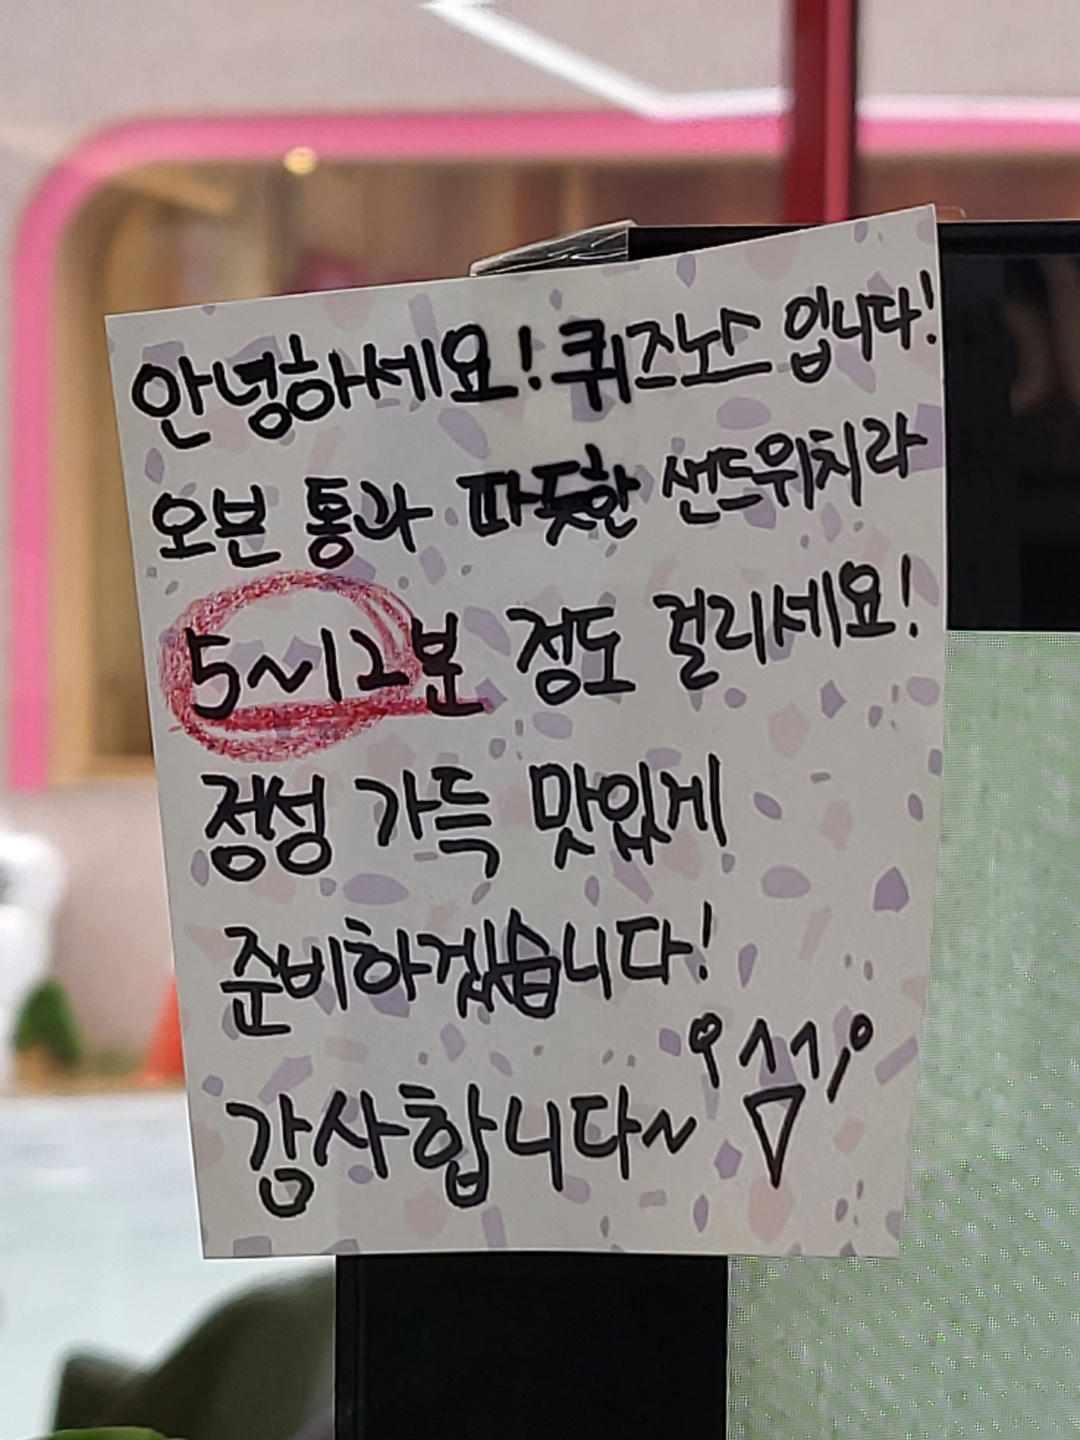 안녕하세요! 퀴즈노스 입니다!
오븐 통과 따뜻한 샌드위치라
5~12분 정도 걸리세요!
정성 가득 맛있게
준비하겠습니다!
감사합니다~